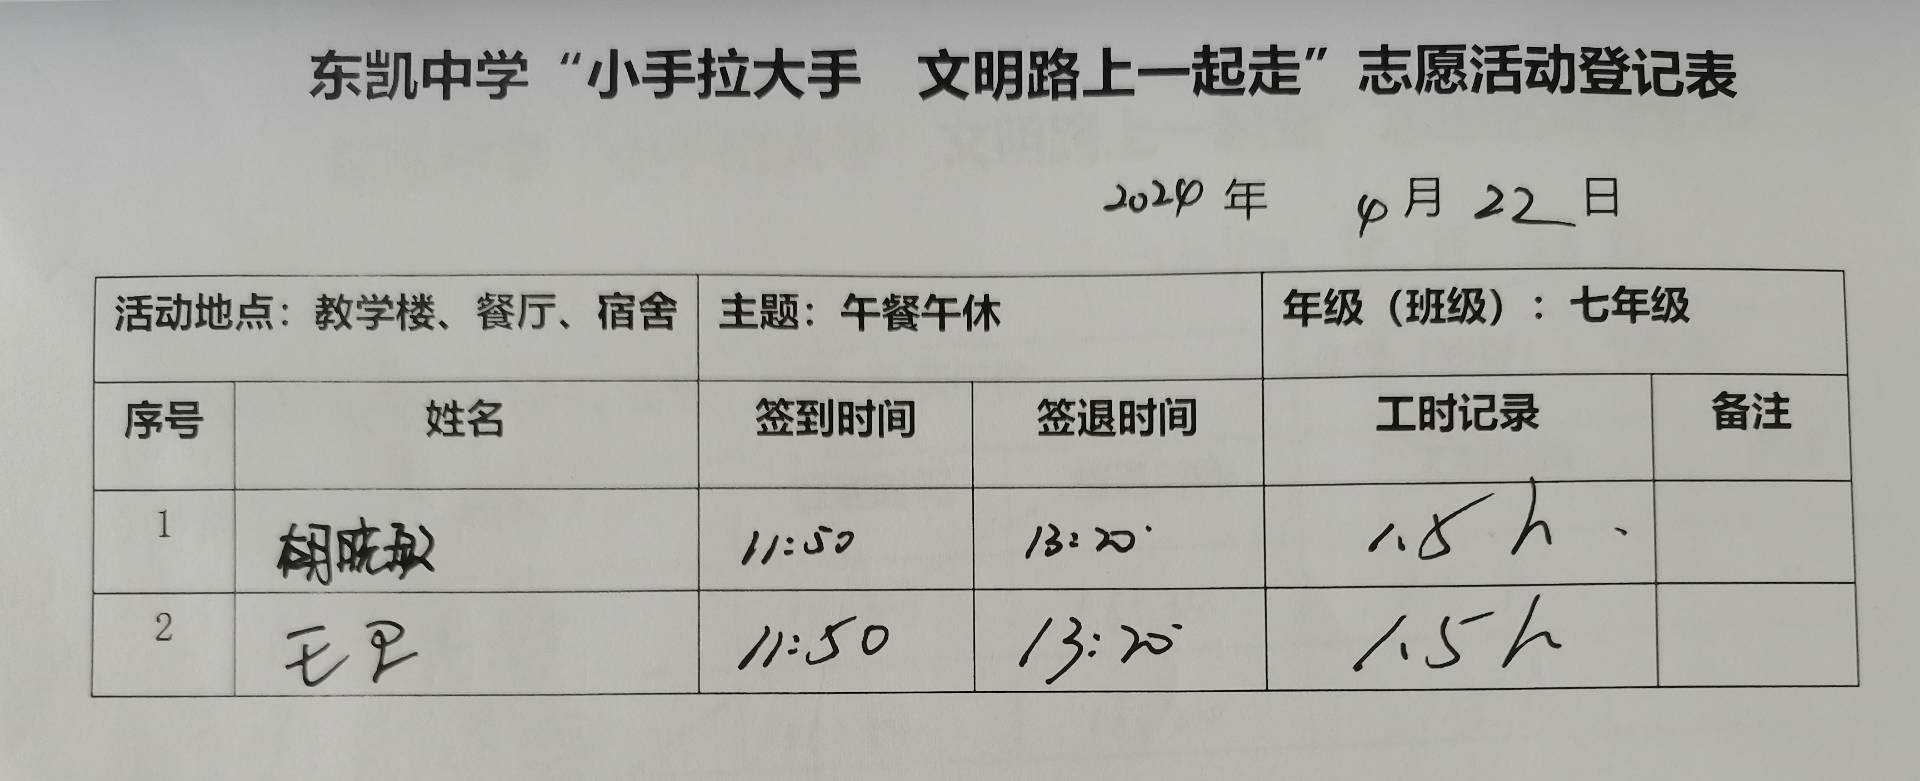 东凯中学“小手拉大手 文明路上一起走”志愿活动登记表
2024年 4月22日
活动地点：教学楼、餐厅、宿舍 主题：午餐午休 年级（班级）：七年级
序号 姓名 签到时间 签退时间 工时记录 备注
1 胡晓敏 11:50 13:20 1.5h
2 11:50 13:20 1.5h